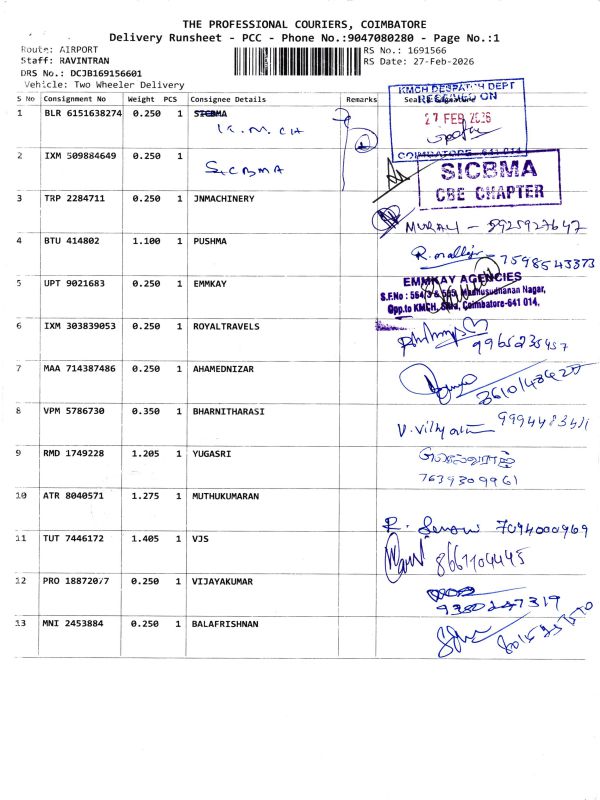 THE PROFESSIONAL COURIERS, COIMBATORE
Delivery Runsheet - PCC - Phone No.:9047080280 - Page No.:1
Route: AIRPORT
Staff: RAVINTRAN
DRS No.: DCJB169156601
Vehicle: Two Wheeler Delivery
RS No.: 1691566
RS Date: 27-Feb-2026
S No Consignment No Weight PCS Consignee Details Remarks Seal & Signature
1 BLR 6151638274 0.250 1 SICBMA
K.M.CH
KMCH DESPATCH DEPT
RECEIVED ON
27 FEB 2026
COIMBATORE - 641 014
2 IXM 509884649 0.250 1
SICBMA
SICBMA
CBE CHAPTER
3 TRP 2284711 0.250 1 JNMACHINERY
MURALI - 5925927647
4 BTU 414802 1.100 1 PUSHMA
7598543373
5 UPT 9021683 0.250 1 EMMKAY
EMMKAY AGENCIES
S.F.No : 564/3 & 565, Madhusudhanan Nagar,
Opp.to KMCH, Sitra, Coimbatore-641 014.
6 IXM 303839053 0.250 1 ROYALTRAVELS
9965235457
7 MAA 714387486 0.250 1 AHAMEDNIZAR
8 VPM 5786730 0.350 1 BHARNITHARASI
9 RMD 1749228 1.205 1 YUGASRI
7639309961
10 ATR 8040571 1.275 1 MUTHUKUMARAN
7094000969
11 TUT 7446172 1.405 1 VJS
8667104445
12 PRO 18872077 0.250 1 VIJAYAKUMAR
9380247319
13 MNI 2453884 0.250 1 BALAFRISHNAN